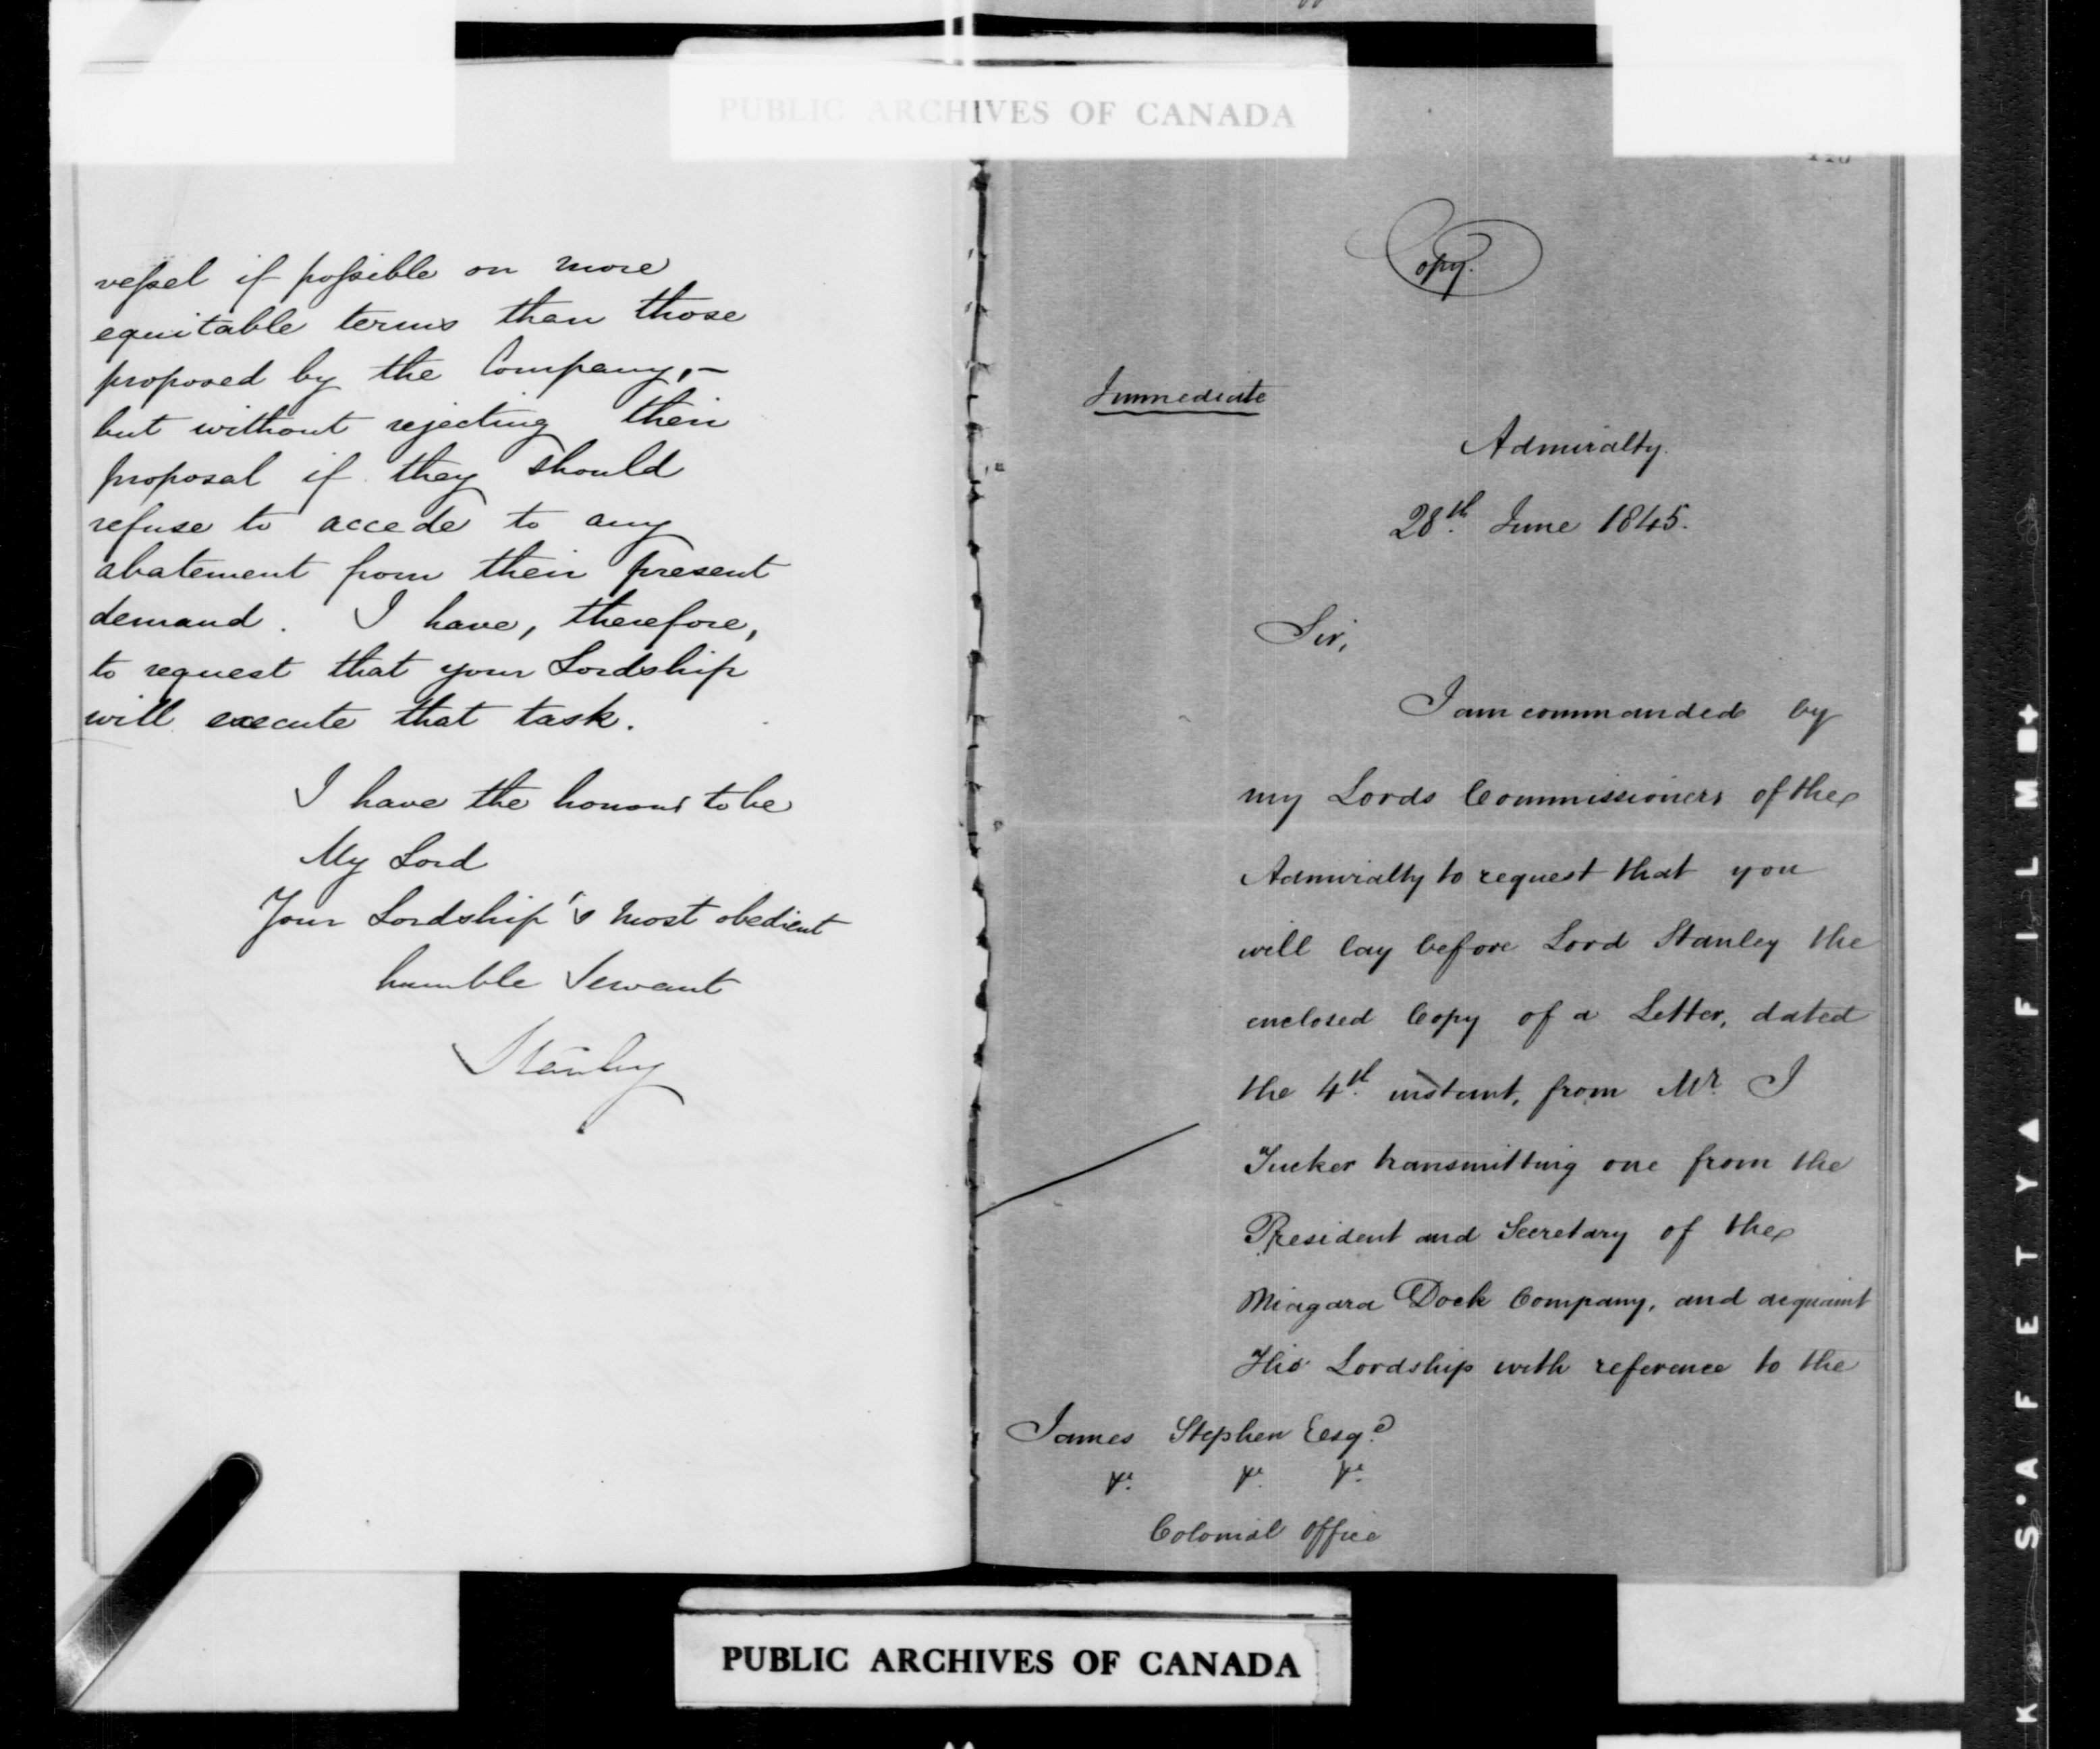 PUBLIC ARCHIVES OF CANADA
vessel if possible on more
equitable terms than those
proposed by the Company,—
but without rejecting their
proposal if they should
refuse to accede to any
abatement from their present
demand. I have, therefore,
to request that your Lordship
will execute that task.
I have the honour to be
My Lord
Your Lordship's most obedient
humble Servant
Stanley
Copy.
Immediate
Admiralty.
28th June 1845.
Sir,
I am commanded by
my Lords Commissioners of the
Admiralty to request that you
will lay before Lord Stanley the
enclosed Copy of a Letter, dated
the 4th instant, from Mr. J
Tucker transmitting one from the
President and Secretary of the
Niagara Dock Company, and acquaint
His Lordship with reference to the
James Stephen Esqe.
&c. &c. &c.
Colonial Office
PUBLIC ARCHIVES OF CANADA
K S·A F E T Y ▲ F I L M